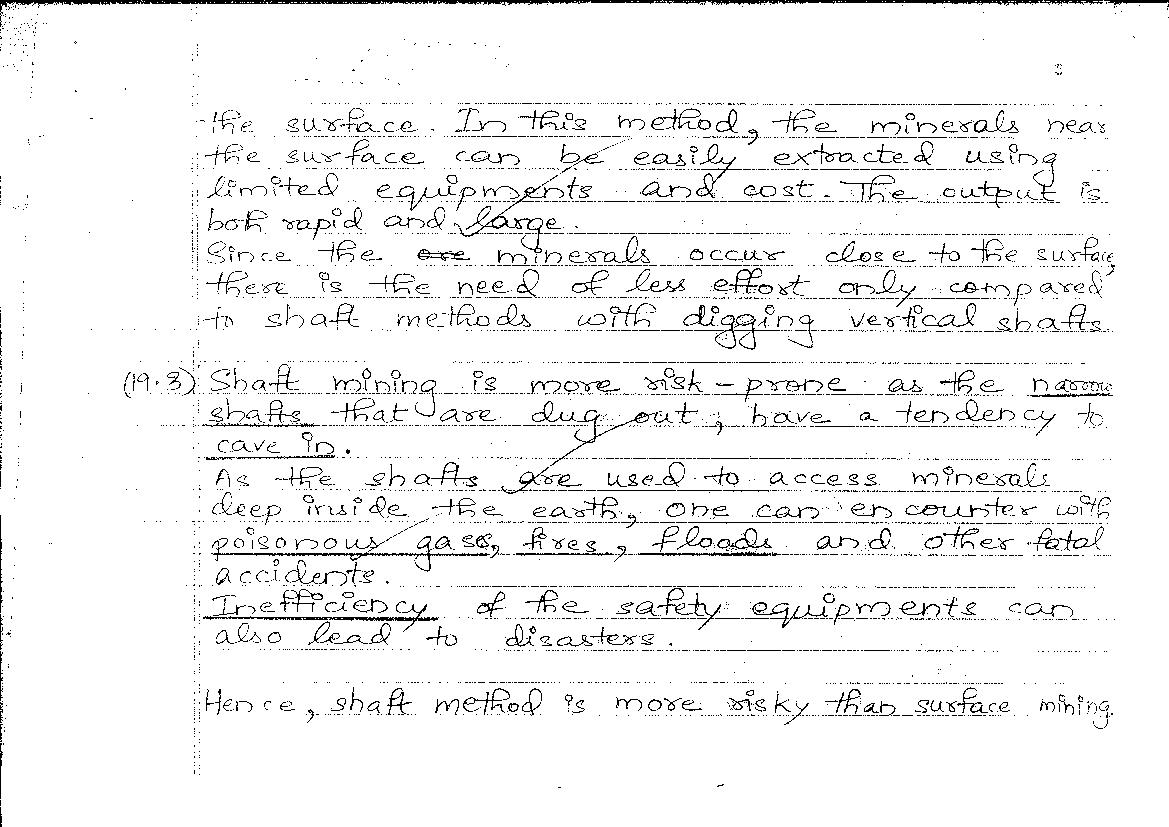 the surface. In this method, the minerals near
the surface can be easily extracted using
limited equipments and cost. The output is
both rapid and large.
Since the ore minerals occur close to the surface,
there is the need of less effort only compared
to shaft methods with digging vertical shafts
(19.3) Shaft mining is more risk-prone as the narrow
shafts that are dug out, have a tendency to
cave in.
As the shafts are used to access minerals
deep inside the earth, one can encounter with
poisonous gases, fires, floods and other fatal
accidents.
Inefficiency of the safety equipments can
also lead to disasters.
Hence, shaft method is more risky than surface mining.